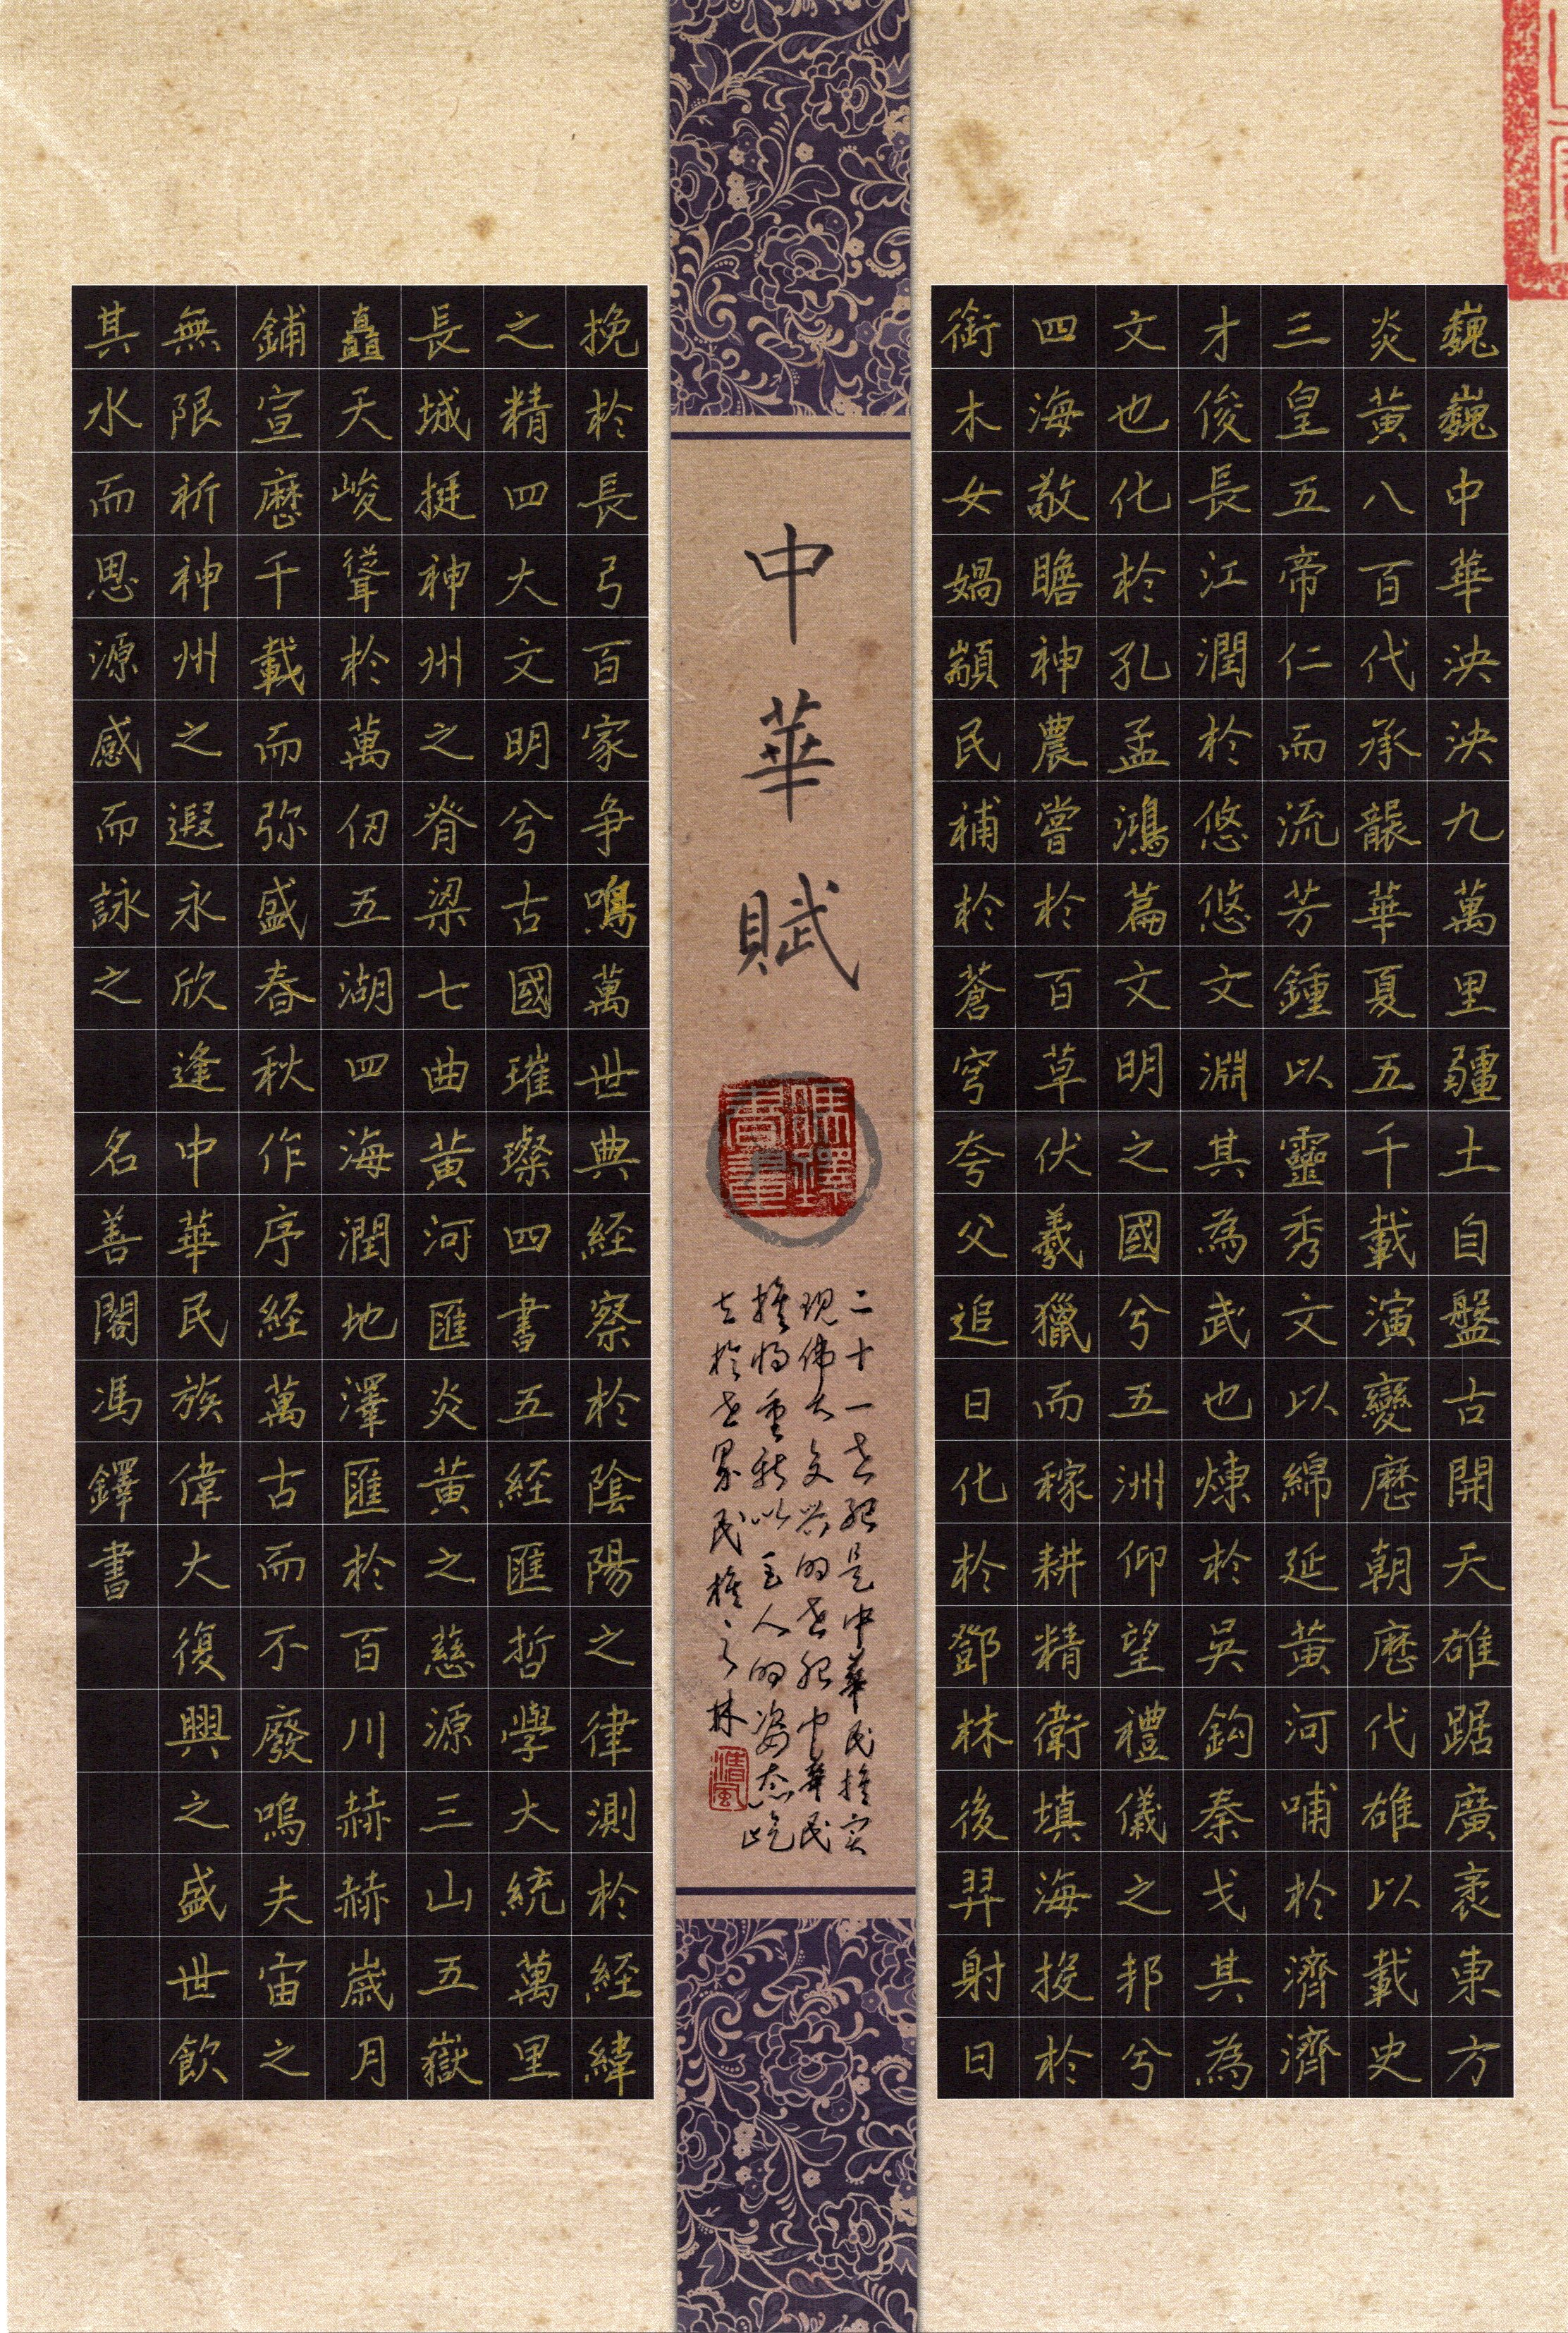 巍巍中華泱泱九萬里疆土自盤古開天雄踞廣袤東方
炎黃八百代承龍華夏五千載演變歷朝歷代雄以載史
三皇五帝仁而流芳鍾以靈秀文以綿延黃河哺於濟濟
才俊長江潤於悠悠文淵其為武也煉於吳鈎秦戈其為
文也化於孔孟鴻篇文明之國兮五洲仰望禮儀之邦兮
四海敬瞻神農嘗於百草伏羲獵而稼耕精衛填海投於
銜木女媧顓民補於蒼穹夸父追日化於鄧林後羿射日
中華賦
二十一世紀是中華民族实
现伟大复兴的世紀中華民
族将重新以主人的姿态屹
立於世界民族之林
清風
挽於長弓百家争鳴萬世典經察於陰陽之律測於經緯
之精四大文明兮古國璀璨四書五經匯哲學大統萬里
長城挺神州之脊梁七曲黃河匯炎黃之慈源三山五嶽
矗天峻聳於萬仞五湖四海潤地澤匯於百川赫赫歲月
鋪宣歷千載而弥盛春秋作序經萬古而不廢嗚夫宙之
無限祈神州之遐永欣逢中華民族偉大復興之盛世飲
其水而思源感而詠之 名善閣馮鐸書